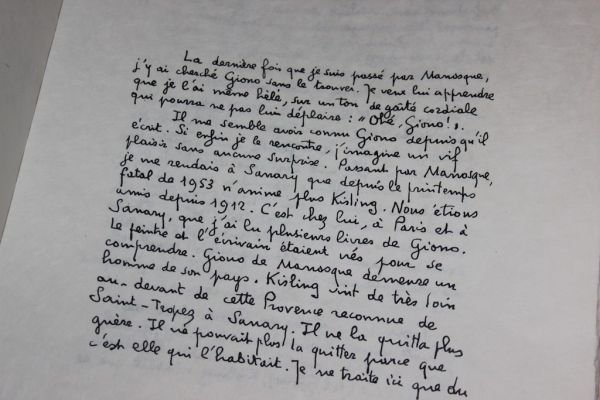 La dernière fois que je suis passé par Manosque,
j'y ai cherché Giono sans le trouver. Je veux lui apprendre
que je l'ai même hélé, sur un ton de gaîté cordiale
qui pourra ne pas lui déplaire : "Ohé, Giono!".
Il me semble avoir connu Giono depuis qu'il
écrit. Si enfin je le rencontre, j'imagine un vif
plaisir sans aucune surprise. Passant par Manosque,
je me rendais à Sanary que depuis le printemps
fatal de 1953 n'anime plus Kisling. Nous étions
amis depuis 1912. C'est chez lui, à Paris et à
Sanary, que j'ai lu plusieurs livres de Giono.
Le peintre et l'écrivain étaient nés pour se
comprendre. Giono de Manosque demeure un
homme de son pays. Kisling vint de très loin
au-devant de cette Provence reconnue de
Saint-Tropez à Sanary. Il ne la quitta plus
guère. Il ne pouvait plus la quitter parce que
c'est elle qui l'habitait. Je ne traite ici que du